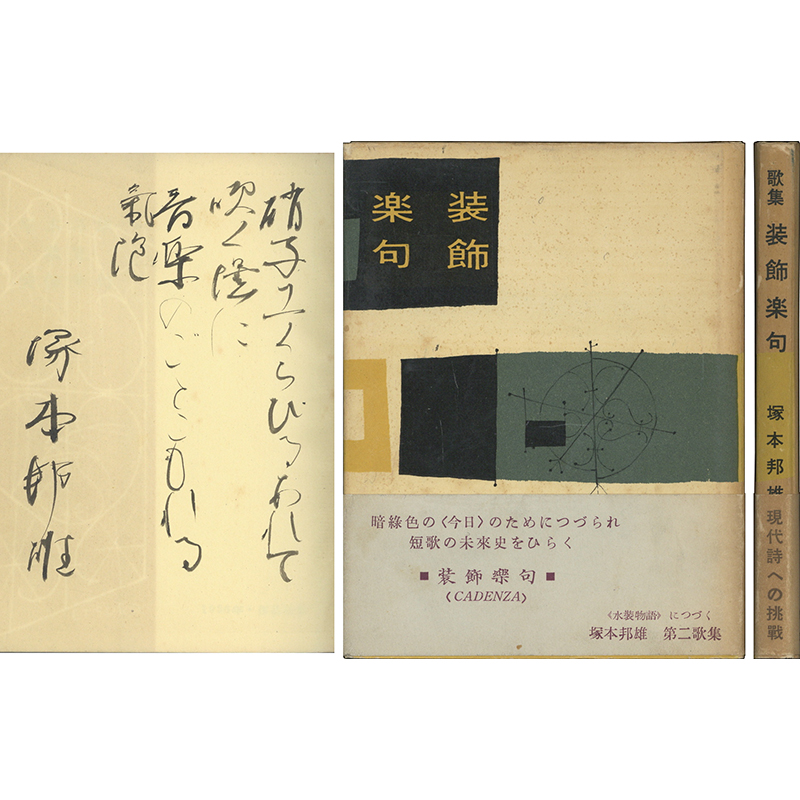 硝子工くちびるあれて
吹く壜に
音樂のごとこもれる
氣泡
塚本邦雄
装飾
楽句
暗綠色の〈今日〉のためにつづられ
短歌の未來史をひらく
■ 装飾樂句 ■
〈CADENZA〉
《水葬物語》につづく
塚本邦雄 第二歌集
歌集 装飾楽句 塚本邦雄
現代詩への挑戰